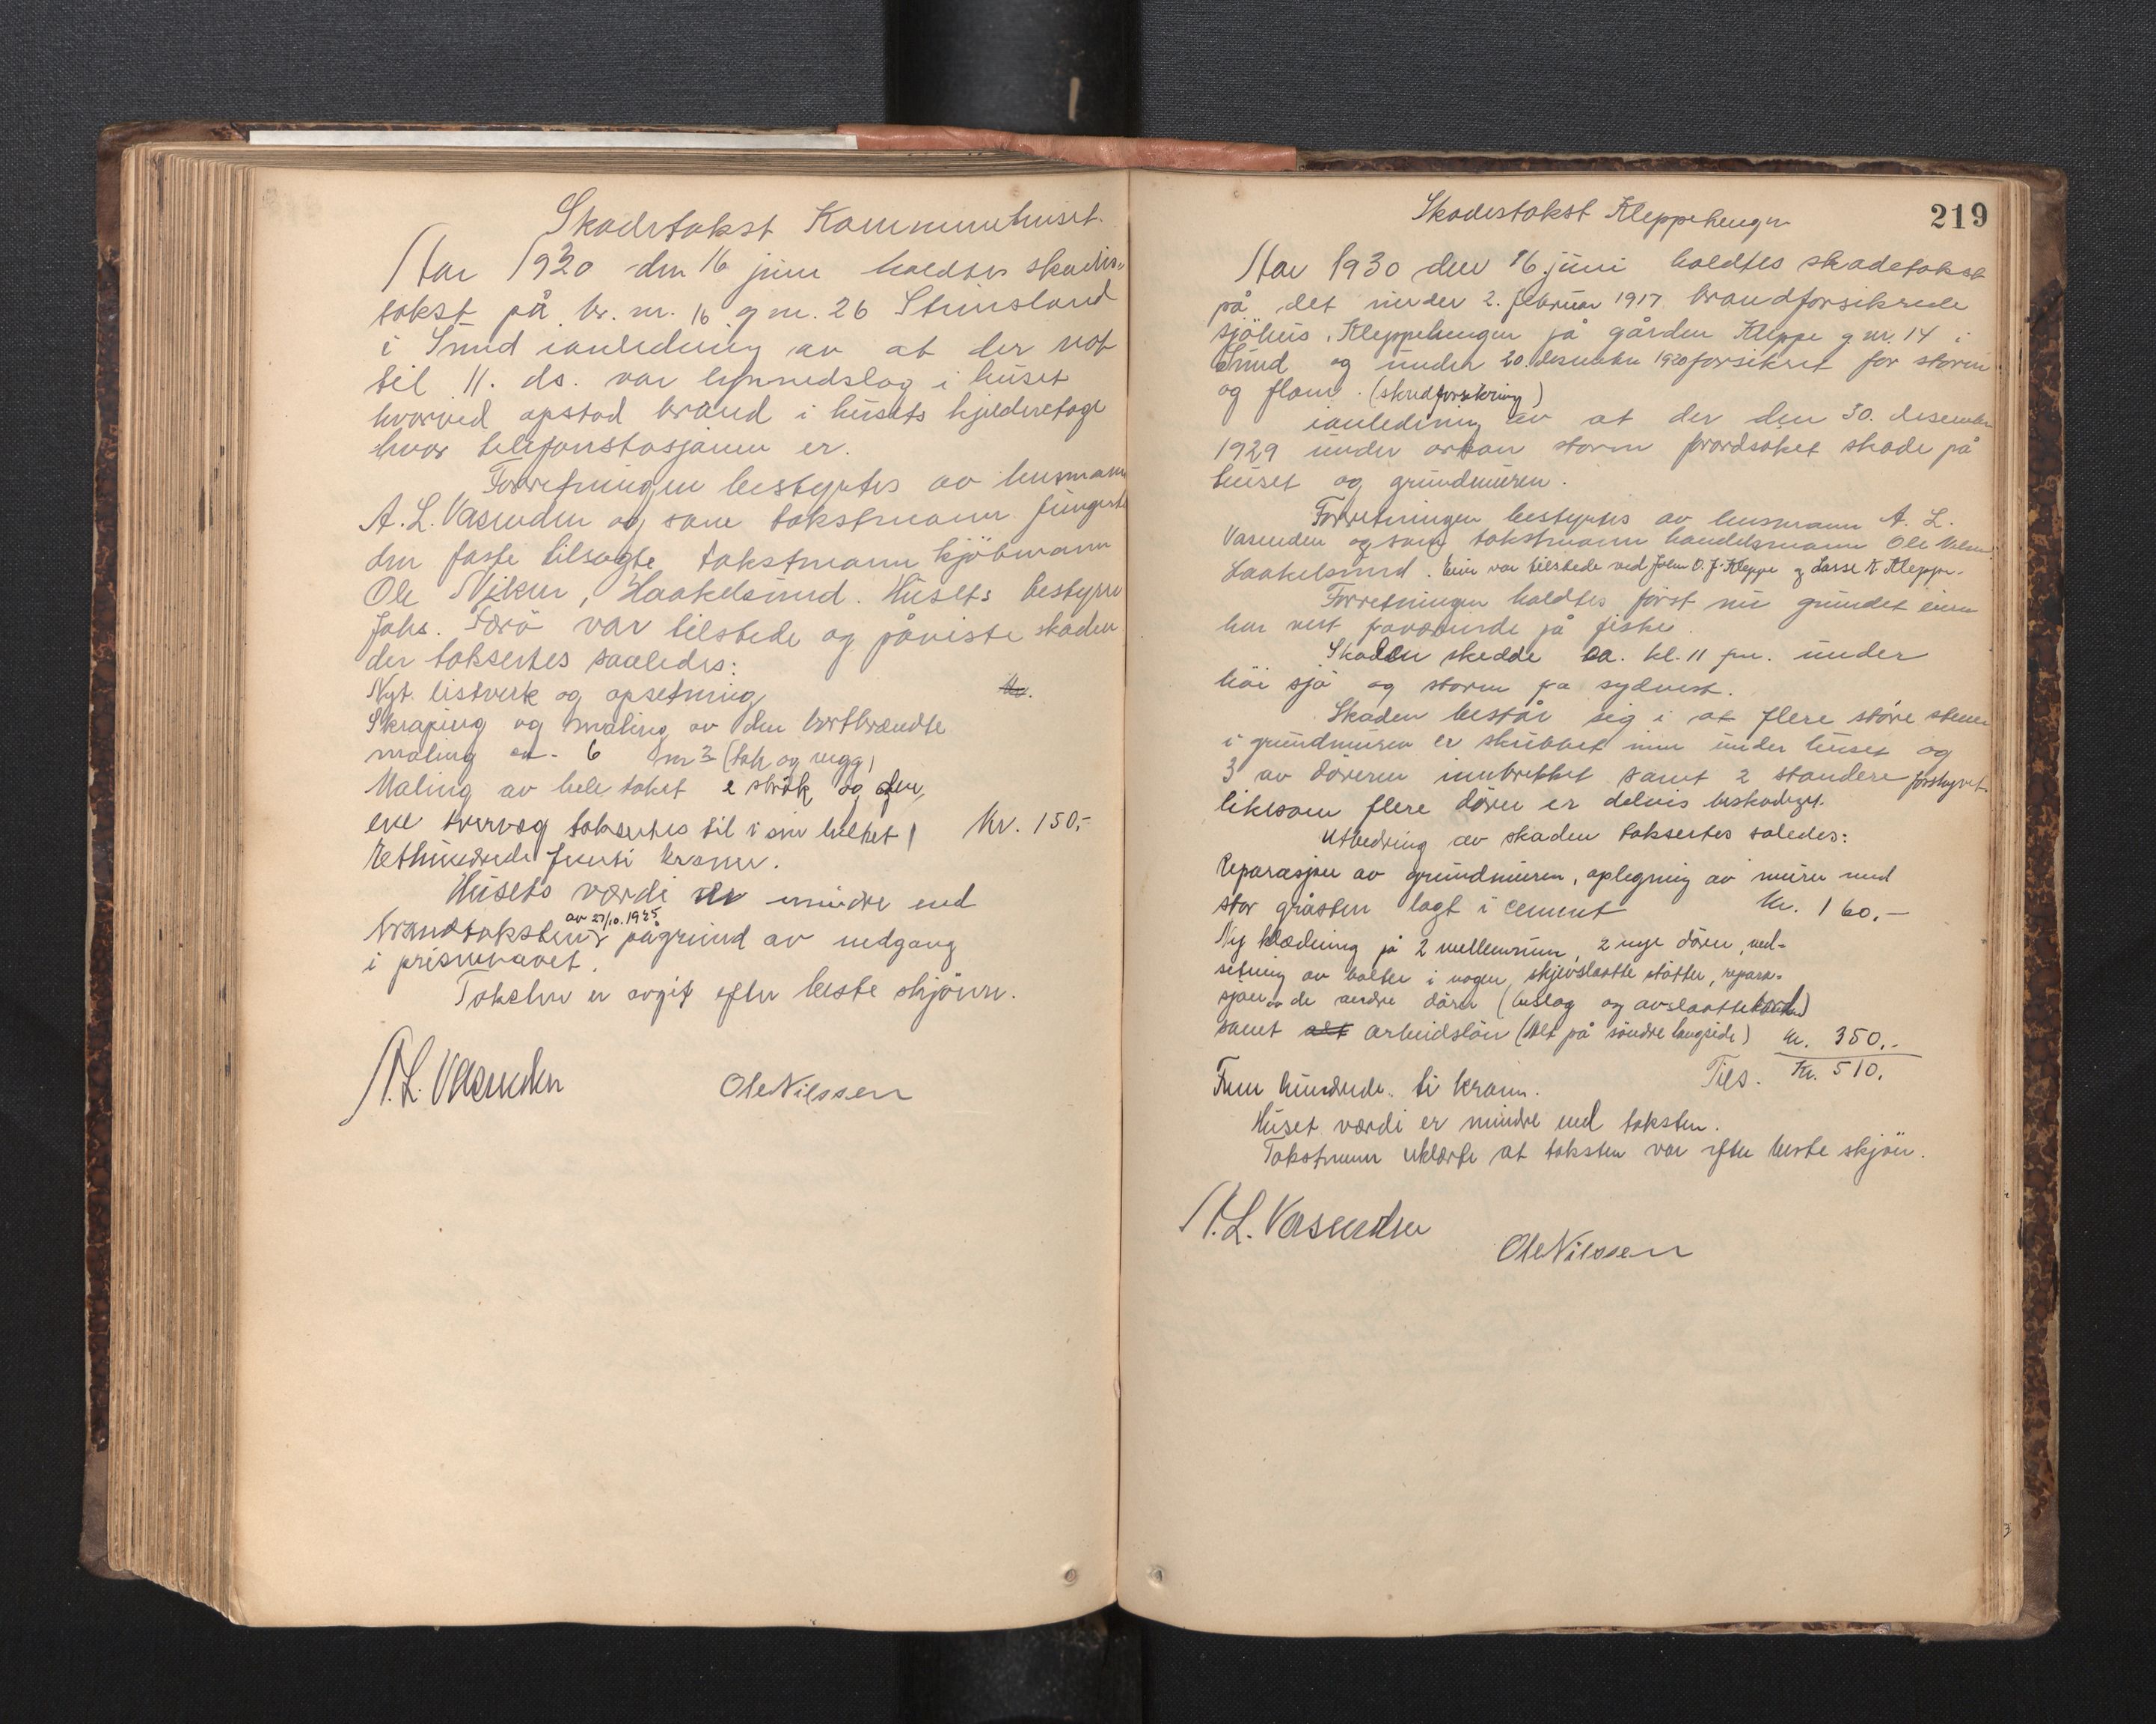 Skadetakst Kommunehuset.
Aar 1930 den 16 juni holdtes skades-
takst på br. nr. 16 g nr. 26 Steinsland
i Sund ianledning av at der nat
til 11. ds. var lynnedslag i huset
hvorved opstod brand i husets kjelderetage
hvor telefonstasjonen er.
Forretningen bestyrtes av lensmann
A. L. Vasenden og som takstmann fungerte
den faste tilsagte takstmann kjöbmann
Ole Nilsen, Haakelsund. Husets bestyrer
Johs. Tærö var tilstede og påviste skaden
der taksertes saaledes:
Nyt listverk og opsetning
Kr.
Skraping og maling av den bortbrændte
maling ca. 6 m2 (tak og vegg)
Maling av hele taket 2 strök og den
ene tvervæg taksertes til i sin helhet Kr. 150,-
Ethundrede femti kroner.
Husets værdi er mindre end
av 27/10.1925
brandtaksten pågrund av nedgang
i prisnivået.
Taksten er avgit efter beste skjönn.
A. L. Vasenden
Ole Nilssen
219
Skadestakst Kleppehengen
Aar 1930 den 16 juni holdtes skadetakst
på det under 2. februar 1917 brandforsikrede
sjöhus, Kleppehengen på gården Kleppe g. nr. 14 i
Sund og under 20. desember 1920 forsikret for storm
og flom. (skredforsikring)
ianledning av at der den 30. desember
1929 under orkan storm forårdsaket skade på
huset og grundmuren.
Forretningen bestyrtes av lensmann A. L.
Vasenden og som takstmann handelsmann Ole Nilsen
Haakelsund. Eier var tilstede ved Johan O. J. Kleppe og Lasse K. Kleppe.
Forretningen holdtes först nu grundet eieren
har vert fraværende på fiske.
Skaden skedde ca. kl. 11 fm. under
höi sjö og storm fra sydvest.
Skaden består sig i at flere störe stener
i grundmuren er skubbet inn under huset og
3 av dörerne innbrettet samt 2 standere forskyvet.
likesom flere dörer er delvis beskadiget.
Utbedring av skaden taksertes saledes:
Reparasjon av grundmuren, oplegning av muren med
stor gråsten lagt i cement Kr. 160.-
Ny klædning på 2 mellemrum, 2 nye dörer, ned-
setning av bolter i vågen, skjevslaatte stötter, repara-
sjon av de andre dörer (beslag og avslaatte bord)
samt alt arbeidslön (Alt på söndre langside) Kr. 350.-
Tils. Kr. 510.
Fem hundrede ti kroner.
Huset værdi er mindre end taksten.
Takstmenn erklærte at taksten var efter beste skjön.
A. L. Vasenden
Ole Nilssen